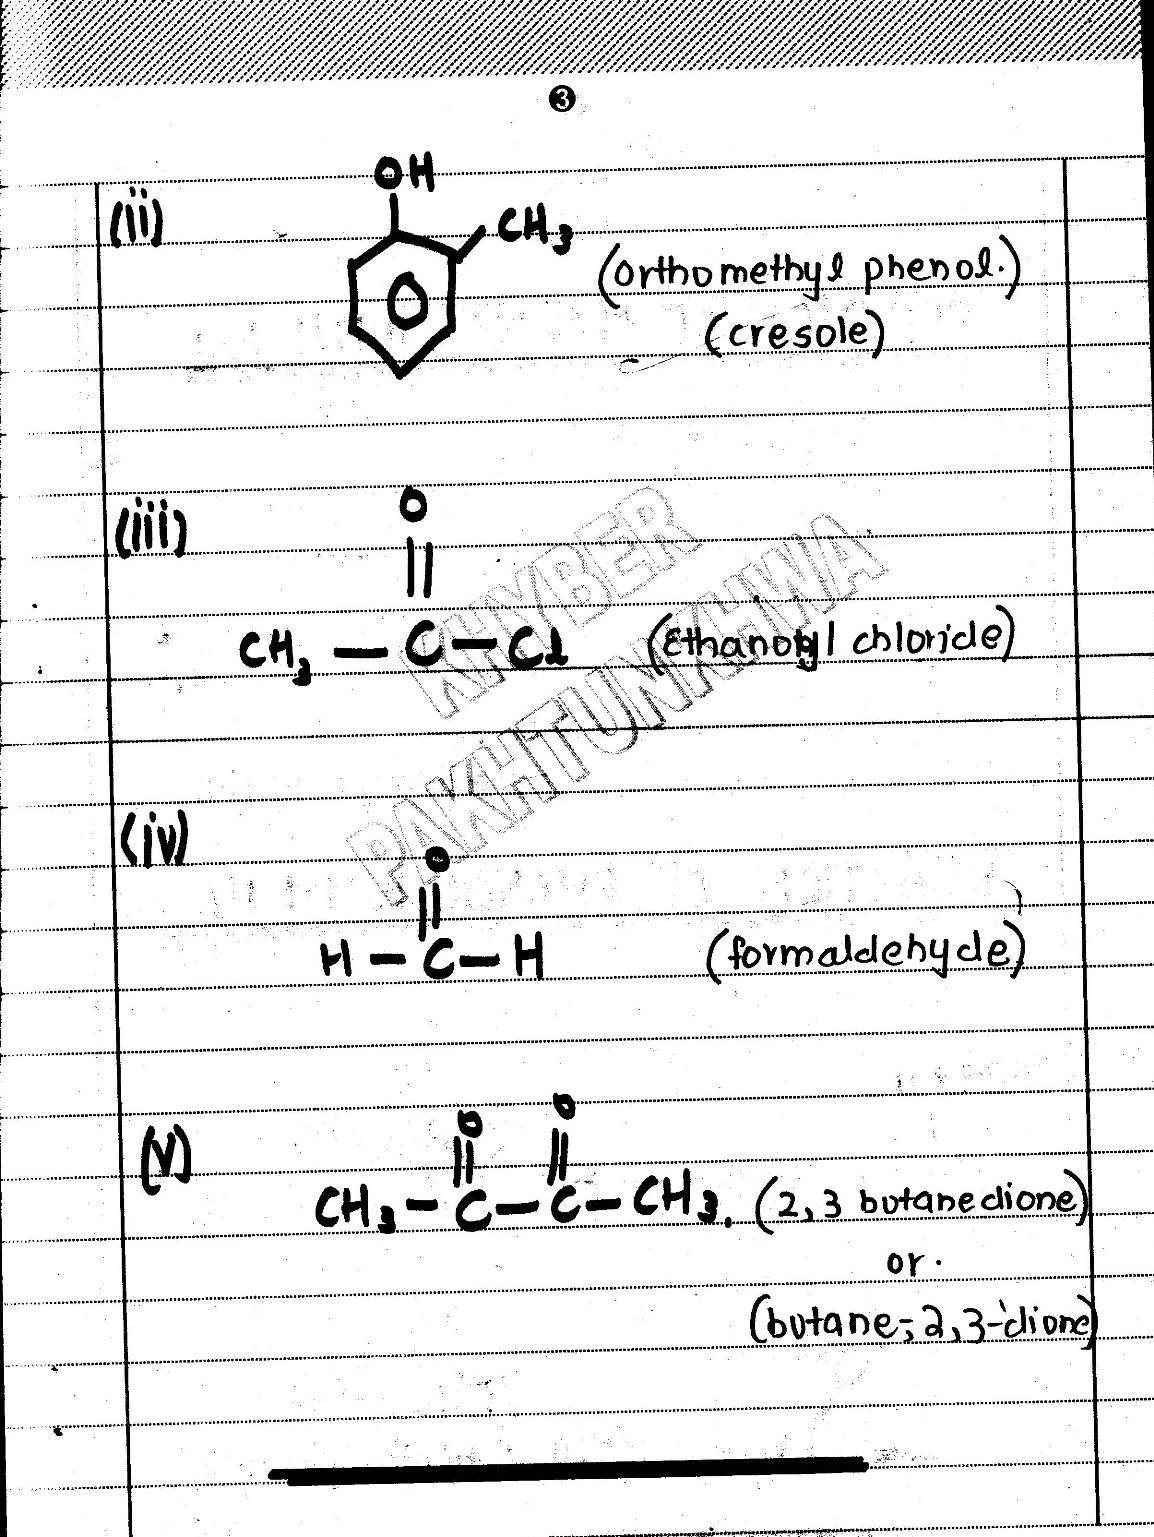 3
(ii)
OH
CH3
(orthomethyl phenol.)
(cresole)
(iii)
O
||
CH3 — C — Cl (Ethanoyl chloride)
KHYBER
PAKHTUNKHWA
(iv)
O
||
H — C — H (formaldehyde)
(v)
O O
|| ||
CH3 - C - C - CH3. (2,3 butanedione)
or.
(butane-2,3-dione)